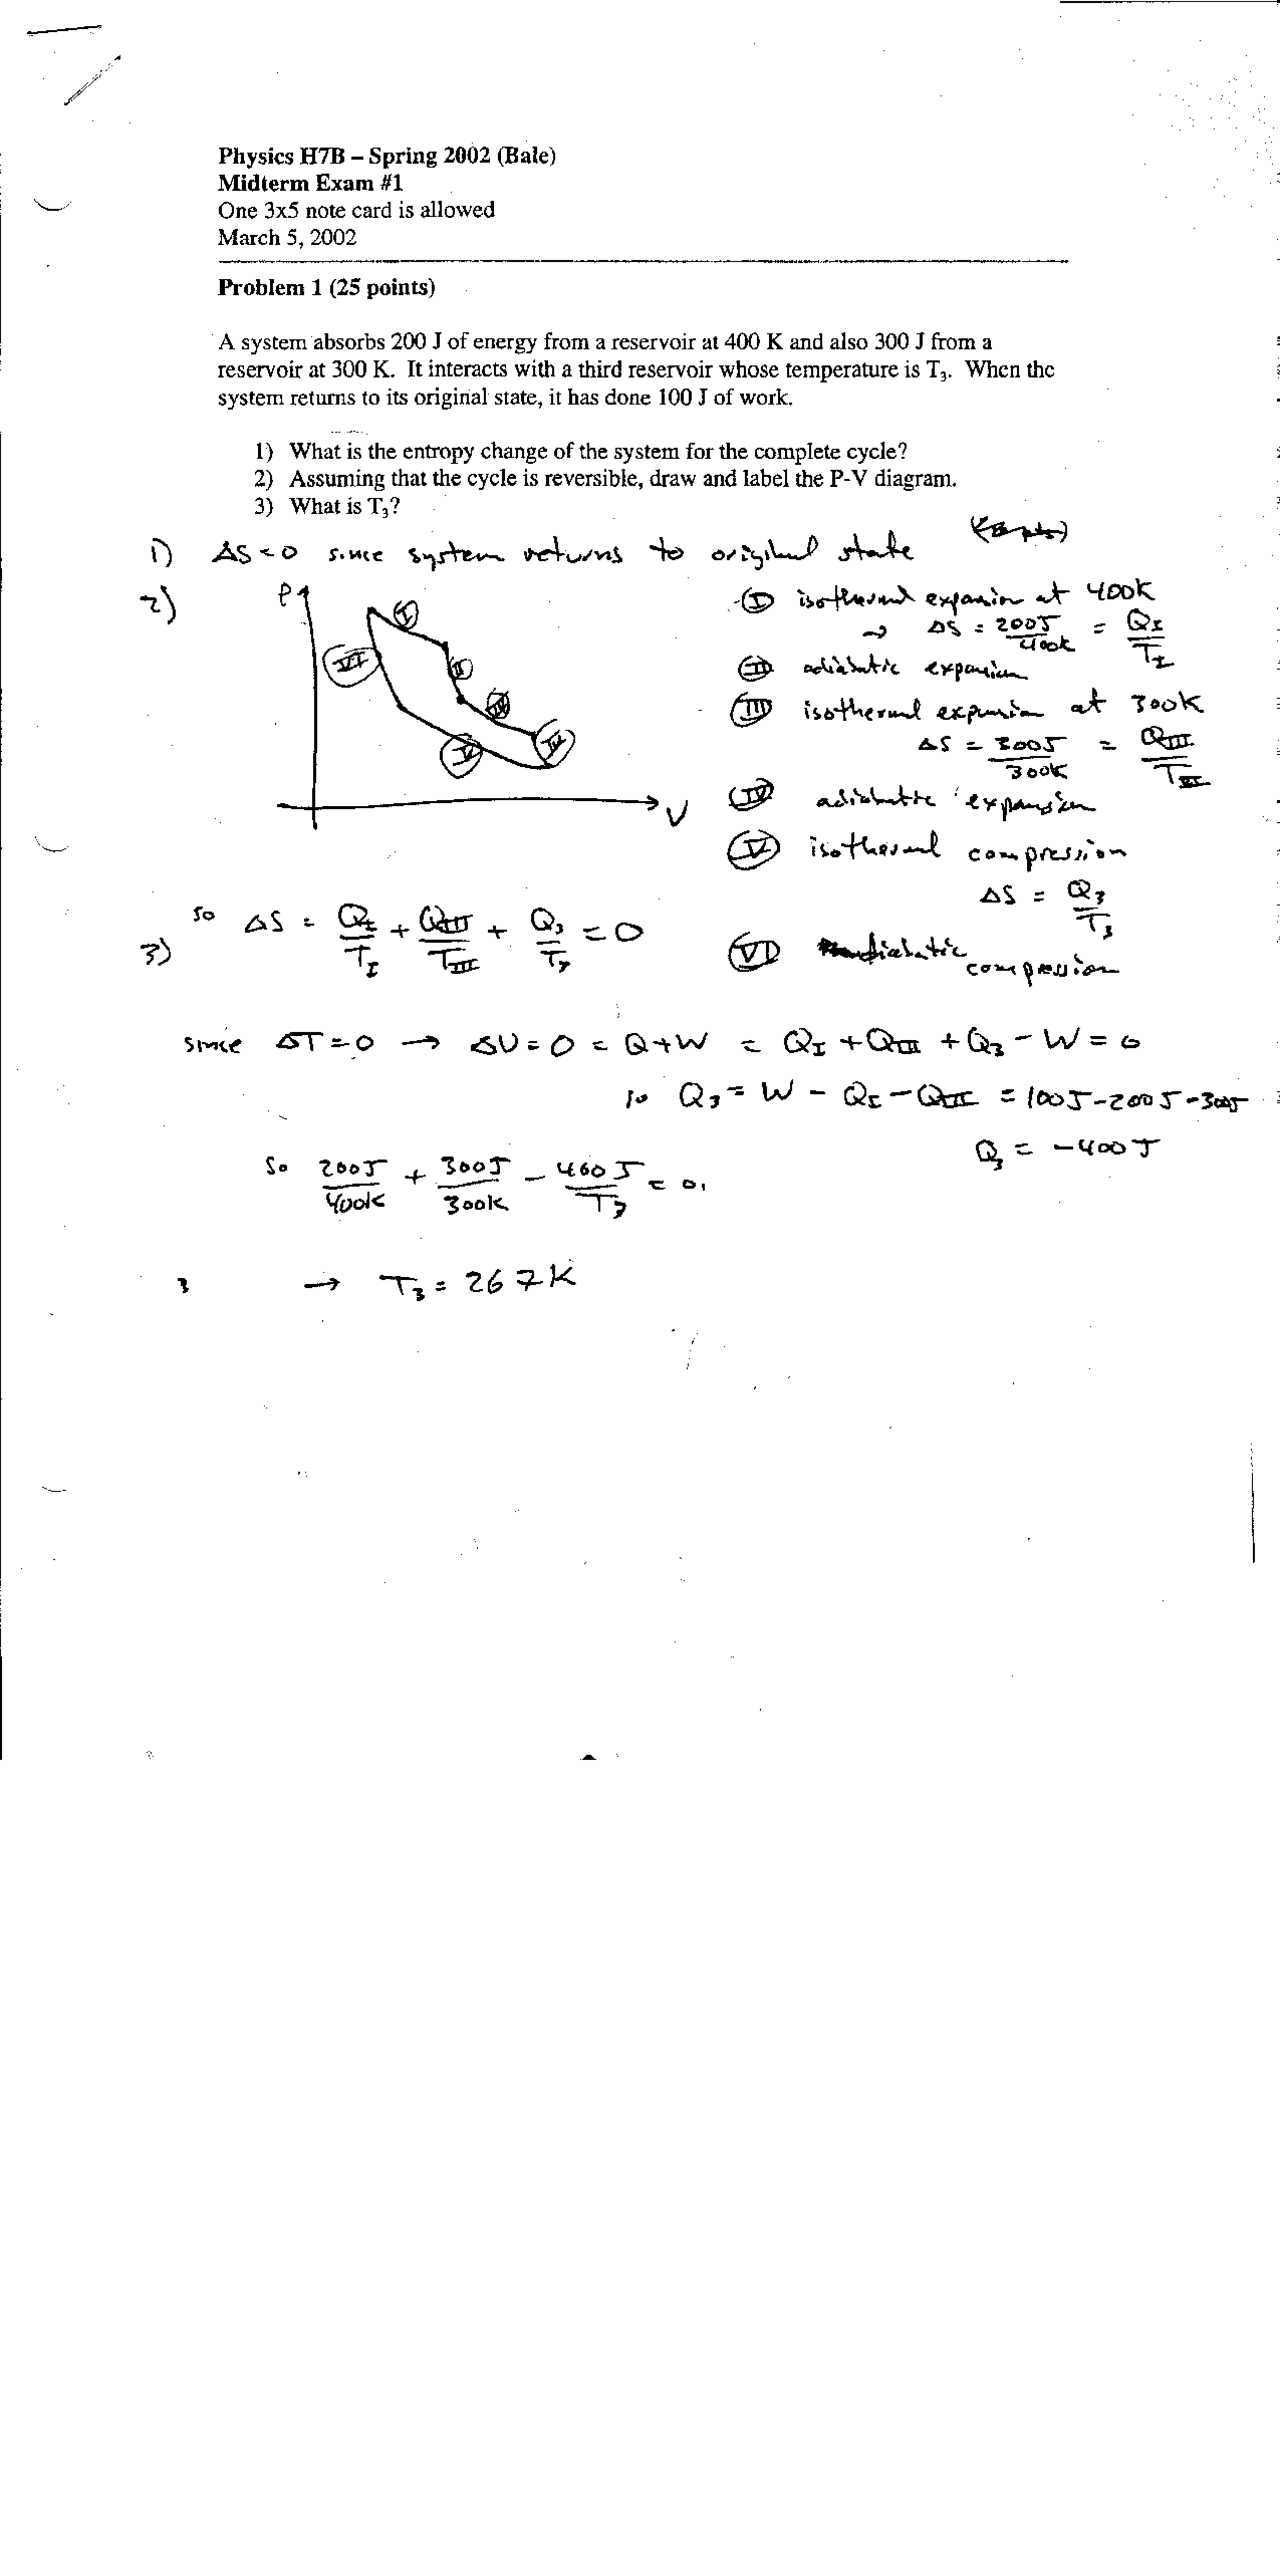 Physics H7B – Spring 2002 (Bale)
Midterm Exam #1
One 3x5 note card is allowed
March 5, 2002
Problem 1 (25 points)
A system absorbs 200 J of energy from a reservoir at 400 K and also 300 J from a
reservoir at 300 K. It interacts with a third reservoir whose temperature is T₃. When the
system returns to its original state, it has done 100 J of work.
1) What is the entropy change of the system for the complete cycle?
2) Assuming that the cycle is reversible, draw and label the P-V diagram.
3) What is T₃?
1) ΔS = 0 since system returns to original state
2) P V
I II III IV V VI
I isothermal expansion at 400K
→ ΔS = 200J/400K = Q_I/T_I
II adiabatic expansion
III isothermal expansion at 300K
ΔS = 300J/300K = Q_III/T_III
IV adiabatic expansion
V isothermal compression
ΔS = Q₃/T₃
VI adiabatic compression
3) so ΔS = Q_I/T_I + Q_III/T_III + Q₃/T₃ = 0
since ΔT = 0 → ΔU = 0 = Q + W = Q_I + Q_III + Q₃ - W = 0
so Q₃ = W - Q_I - Q_III = 100J - 200J - 300J
Q₃ = -400J
So 200J/400K + 300J/300K - 400J/T₃ = 0
→ T₃ = 267K